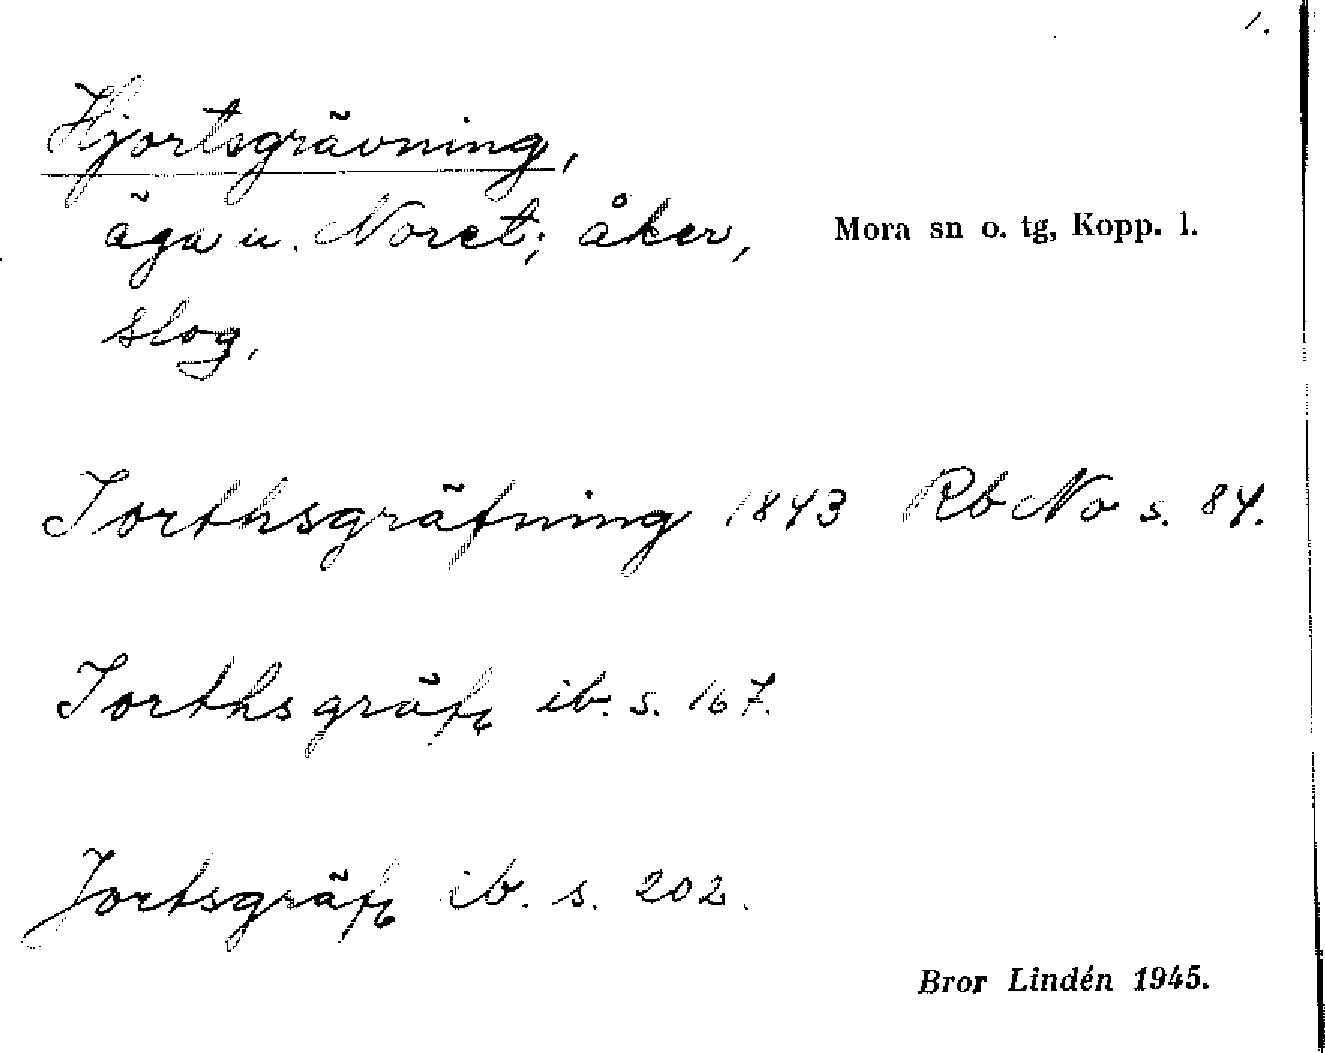 1.
Hjortsgrävning,
äga u. Noret; åker, Mora sn o. tg, Kopp. l.
slog,
Iorthsgräfning 1843 Rb No s. 84.
Iorthsgräfn ib. s. 167.
Jortsgräfn ib. s. 202.
Bror Lindén 1945.